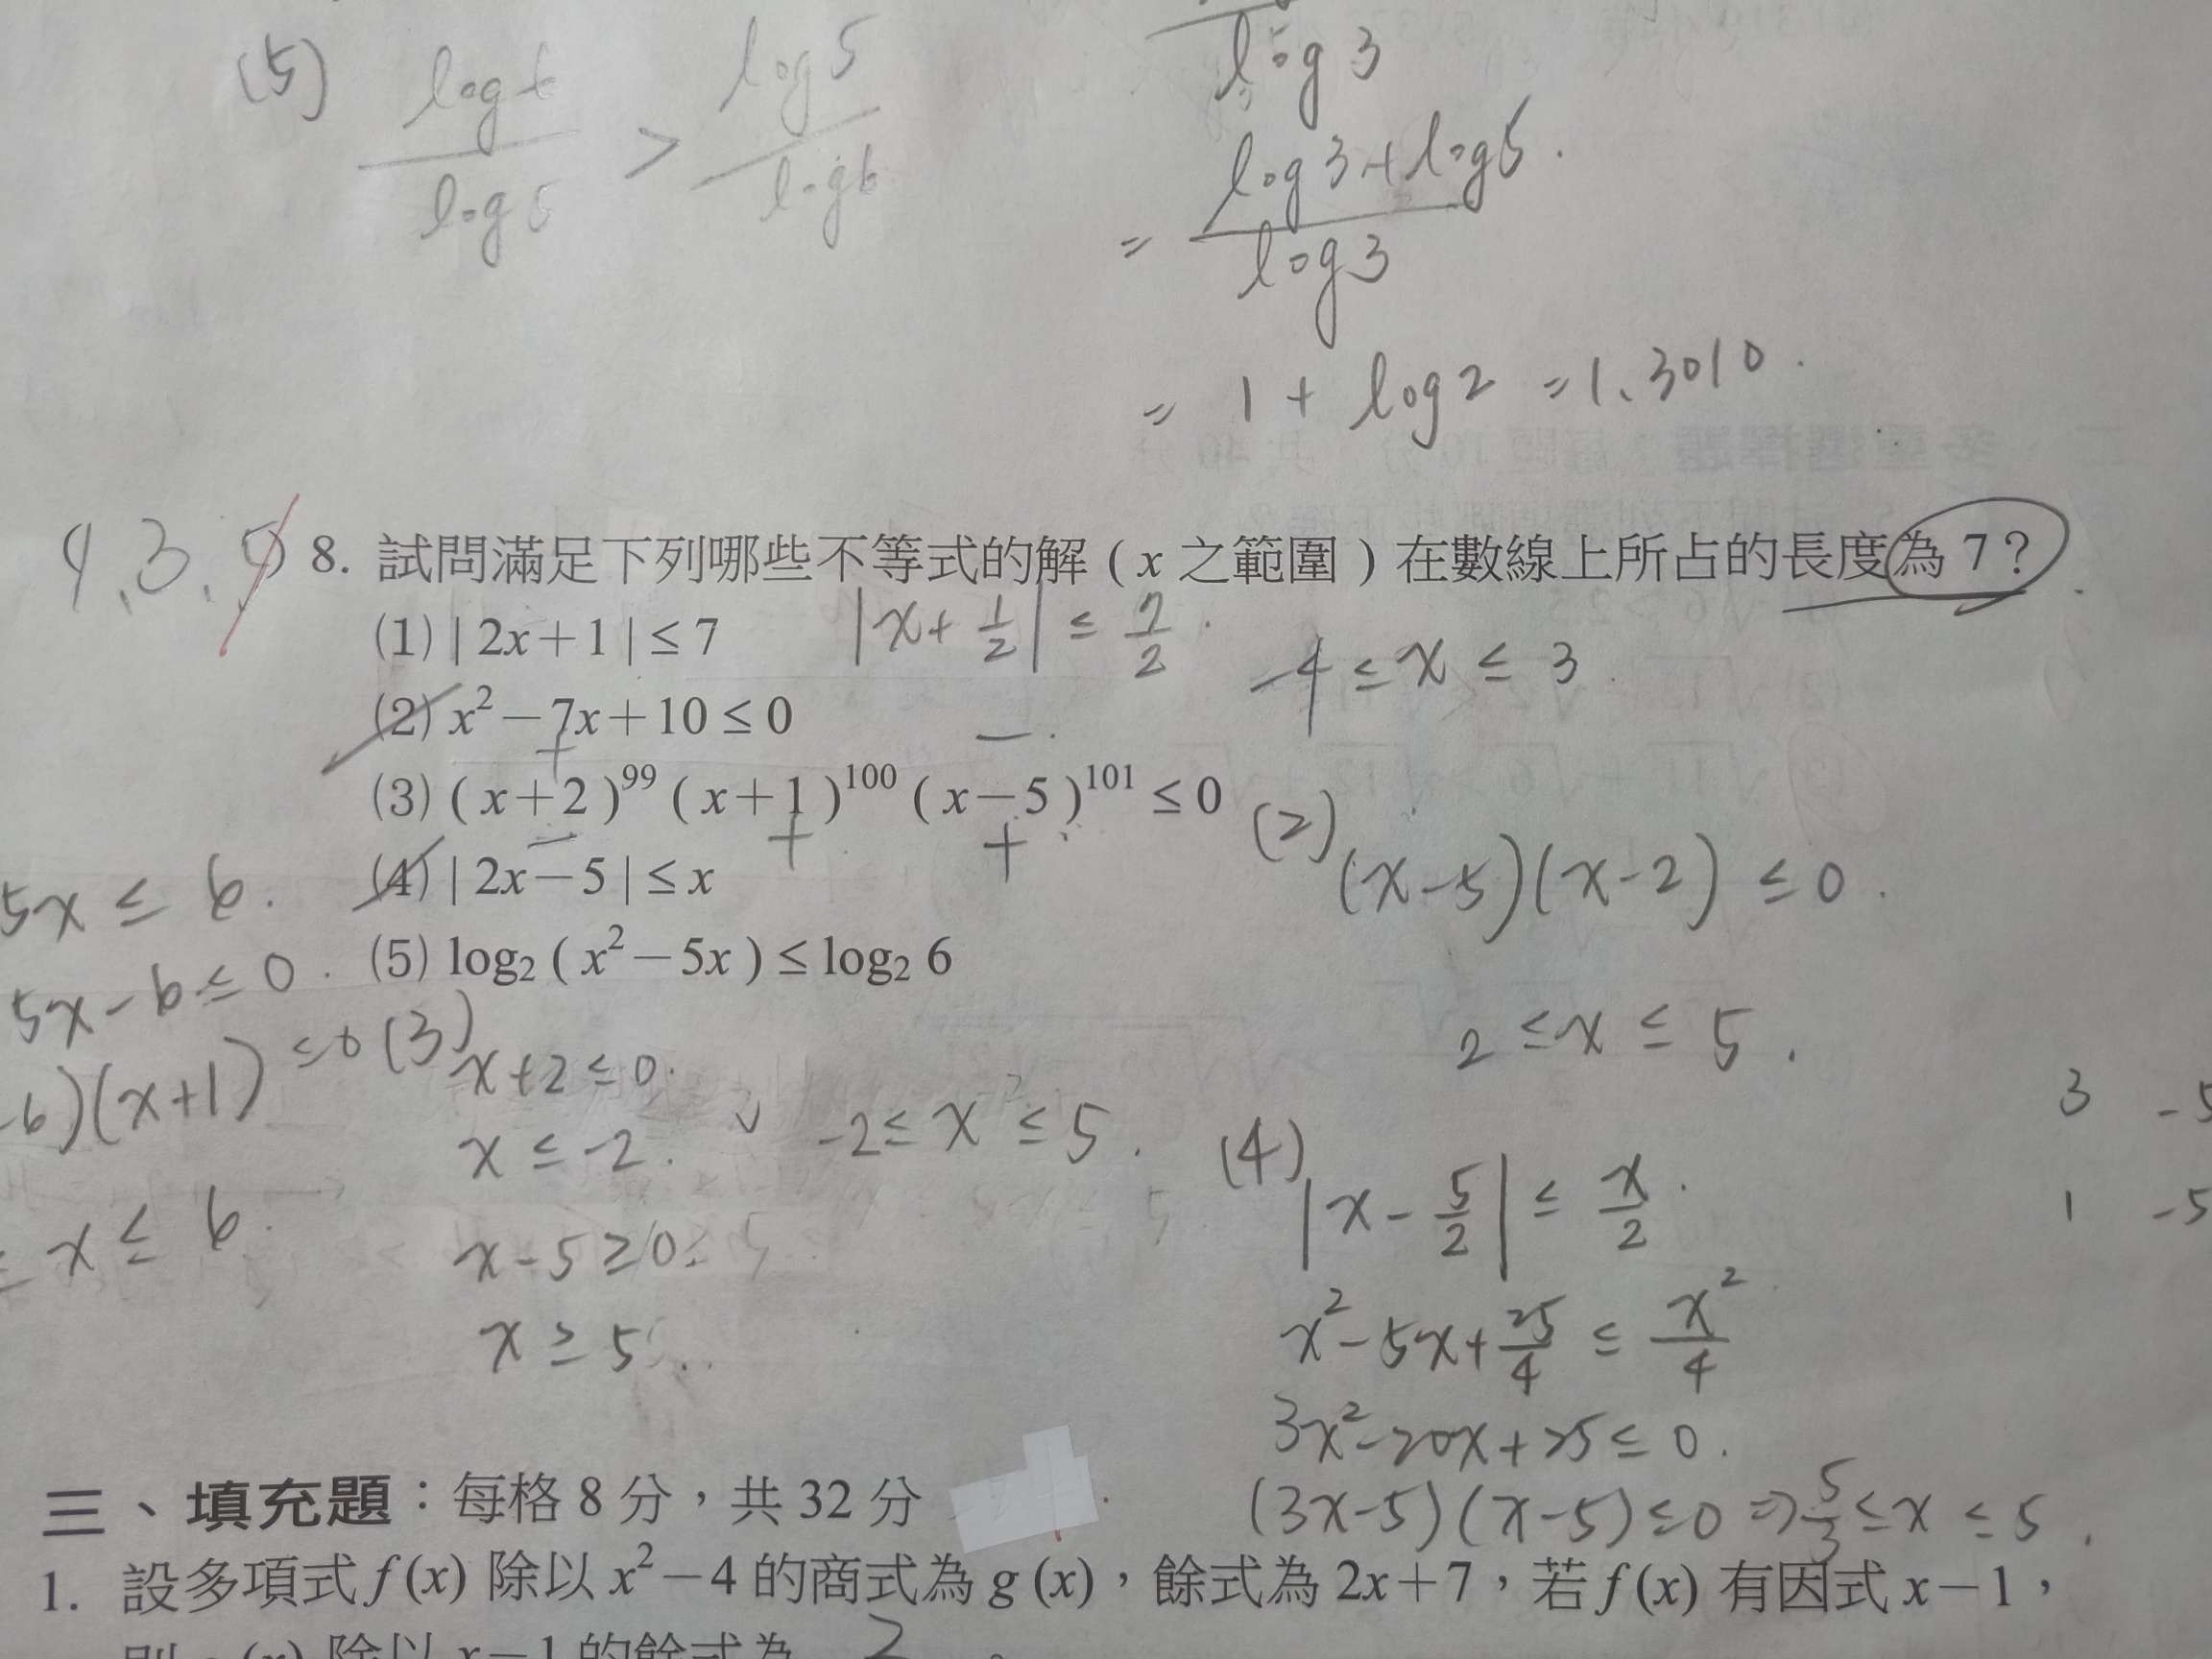 (5) log6 / log5 > log5 / log6
log 3
= (log3 + log5) / log3
= 1 + log2 = 1.3010
8. 試問滿足下列哪些不等式的解 ( x 之範圍 ) 在數線上所占的長度為 7 ?
(1) | 2x+1 | ≤ 7
|x + 1/2| ≤ 7/2 .
-4 ≤ x ≤ 3
(2) x² − 7x + 10 ≤ 0
(3) ( x+2 )⁹⁹ ( x+1 )¹⁰⁰ ( x−5 )¹⁰¹ ≤ 0
(4) | 2x−5 | ≤ x
(5) log₂ ( x² − 5x ) ≤ log₂ 6
(2) (x-5)(x-2) ≤ 0 .
2 ≤ x ≤ 5 .
5x ≤ 6 .
5x - 6 ≤ 0 .
-6)(x+1) ≤ 0
x ≤ 6
(3) x+2 ≤ 0 .
x ≤ -2 .
-2 ≤ x ≤ 5 .
x-5 ≥ 0
x ≥ 5
(4) |x - 5/2| ≤ x/2 .
x² - 5x + 25/4 ≤ x²/4
3x² - 20x + 25 ≤ 0 .
(3x-5)(x-5) ≤ 0 ⇒ 5/3 ≤ x ≤ 5 .
3 -5
1 -5
三、填充題：每格 8 分，共 32 分
1. 設多項式 f (x) 除以 x² − 4 的商式為 g (x)，餘式為 2x+7，若 f (x) 有因式 x−1，
則 g (x) 除以 x−1 的餘式為 。